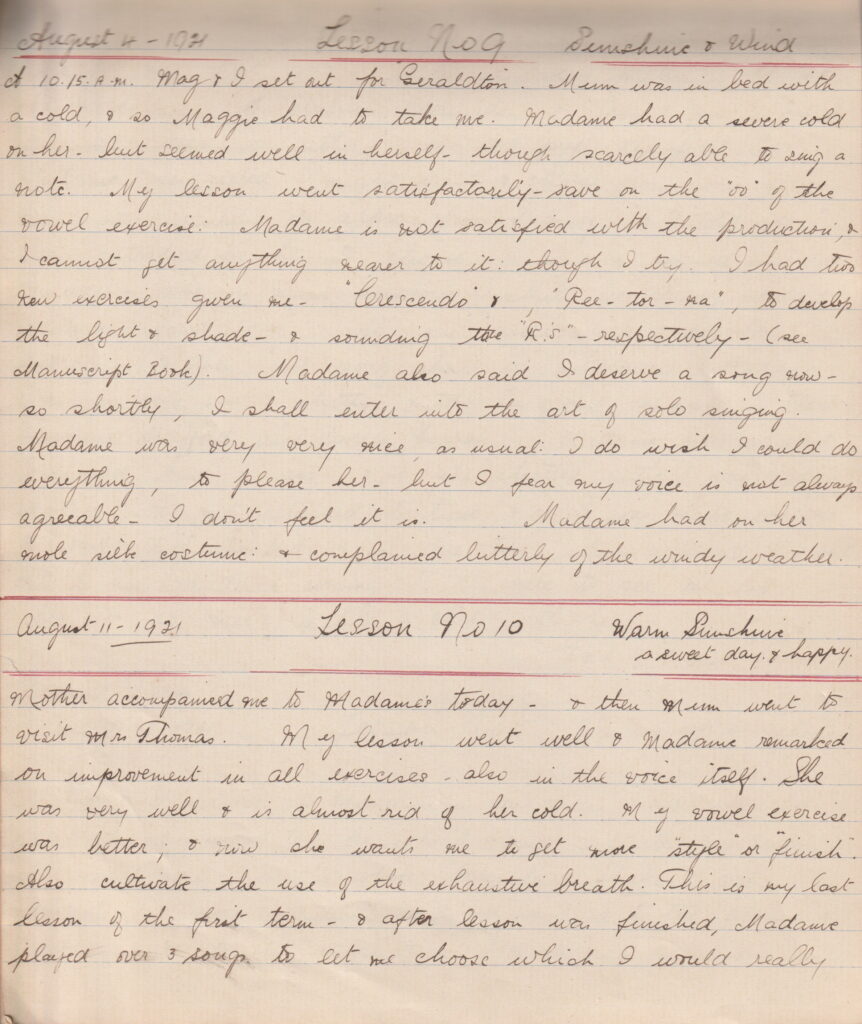 August 4 - 1921 Lesson No 9 Sunshine & Wind
At 10.15. A.m. Mag & I set out for Geraldton. Mum was in bed with
a cold, & so Maggie had to take me. Madame had a severe cold
on her - but seemed well in herself - though scarcely able to sing a
note. My lesson went satisfactorily - save on the "oo" of the
vowel exercise: Madame is not satisfied with the production, &
I cannot get anything nearer to it: though I try. I had two
new exercises given me - "Crescendo" & "Ree - tor - na", to develop
the light & shade - & sounding the "R.s" - respectively - (see
Manuscript Book). Madame also said I deserve a song now -
so shortly, I shall enter into the art of solo singing.
Madame was very very nice, as usual: I do wish I could do
everything, to please her - but I fear my voice is not always
agreeable - I don't feel it is. Madame had on her
mole silk costume: & complained bitterly of the windy weather.
August 11 - 1921 Lesson No 10 Warm Sunshine
a sweet day. & happy.
Mother accompanied me to Madame's today - & then Mum went to
visit Mrs Thomas. My lesson went well & Madame remarked
on improvement in all exercises - also in the voice itself. She
was very well & is almost rid of her cold. My vowel exercise
was better; & now she wants me to get more "style" or "finish".
Also cultivate the use of the exhaustive breath. This is my last
lesson of the first term - & after lesson was finished, Madame
played over 3 songs to let me choose which I would really